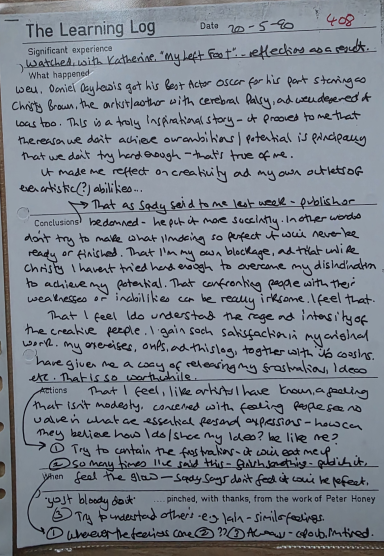 The Learning Log Date 20-5-90 408
Significant experience
Watched, with Katherine, "My Left Foot" - reflections as a result.
What happened
Well, Daniel Day Lewis got his Best Actor Oscar for his part starring as
Christy Brown, the artist/author with cerebral Palsy, and well deserved it
was too. This is a truly inspirational story - it proved to me that
the reason we don't achieve our ambitions / potential is principally
that we don't try hard enough - that's true of me.
It made me reflect on creativity and my own outlets of
even artistic (?) abilities...
That as said to me last week - publish or
Conclusions be damned - he put it more succinctly. In other words
don't try to make what I'm doing so perfect it will never be
ready or finished. That I'm my own blockage, and that unlike
Christy I haven't tried hard enough to overcome my disinclination
to achieve my potential. That confronting people with their
weaknesses or inabilities can be really irksome. I feel that.
That I feel I do understand the rage and intensity of
the creative people. I gain such satisfaction in my original
work. my exercises, and this log, together with its cousins.
have given me a way of releasing my frustrations, ideas
etc. That is so worthwhile.
Actions That I feel, like artists I have known, a feeling
that isn't modesty, concerned with feeling people see no
value in what are essential personal expressions - how can
they believe how I do / share my idea? be like me?
① Try to contain the frustrations - it will eat me up
② So many times I've said this - finish something - publish it,
When feel the glow - says don't feel it will be perfect.
'just bloody do it' ....pinched, with thanks, from the work of Peter Honey
③ Try to understand others - e.g. Iain - similar feelings.
① Whenever the feelings come ② ?? ③